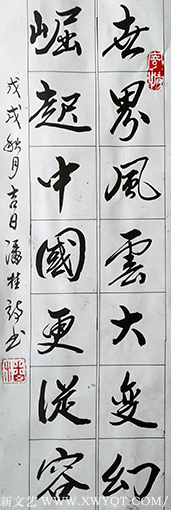 世界風雲大變幻
崛起中國更從容
戊戌秋月吉日潘桂詩書
新文艺 WWW.XWYQT.COM/